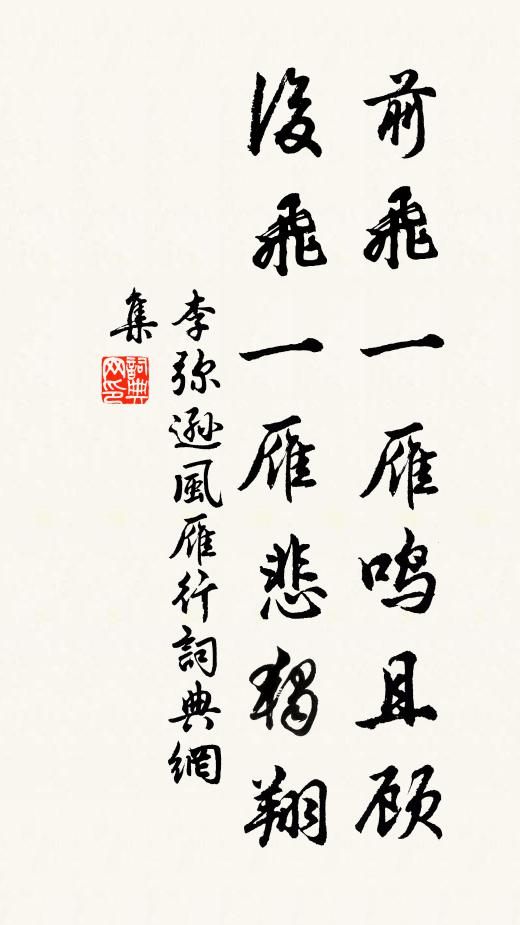 前飛一雁鸣且顾
後飛一雁悲獨翔
李弥遜風雁行詞典網
集
詞典网印